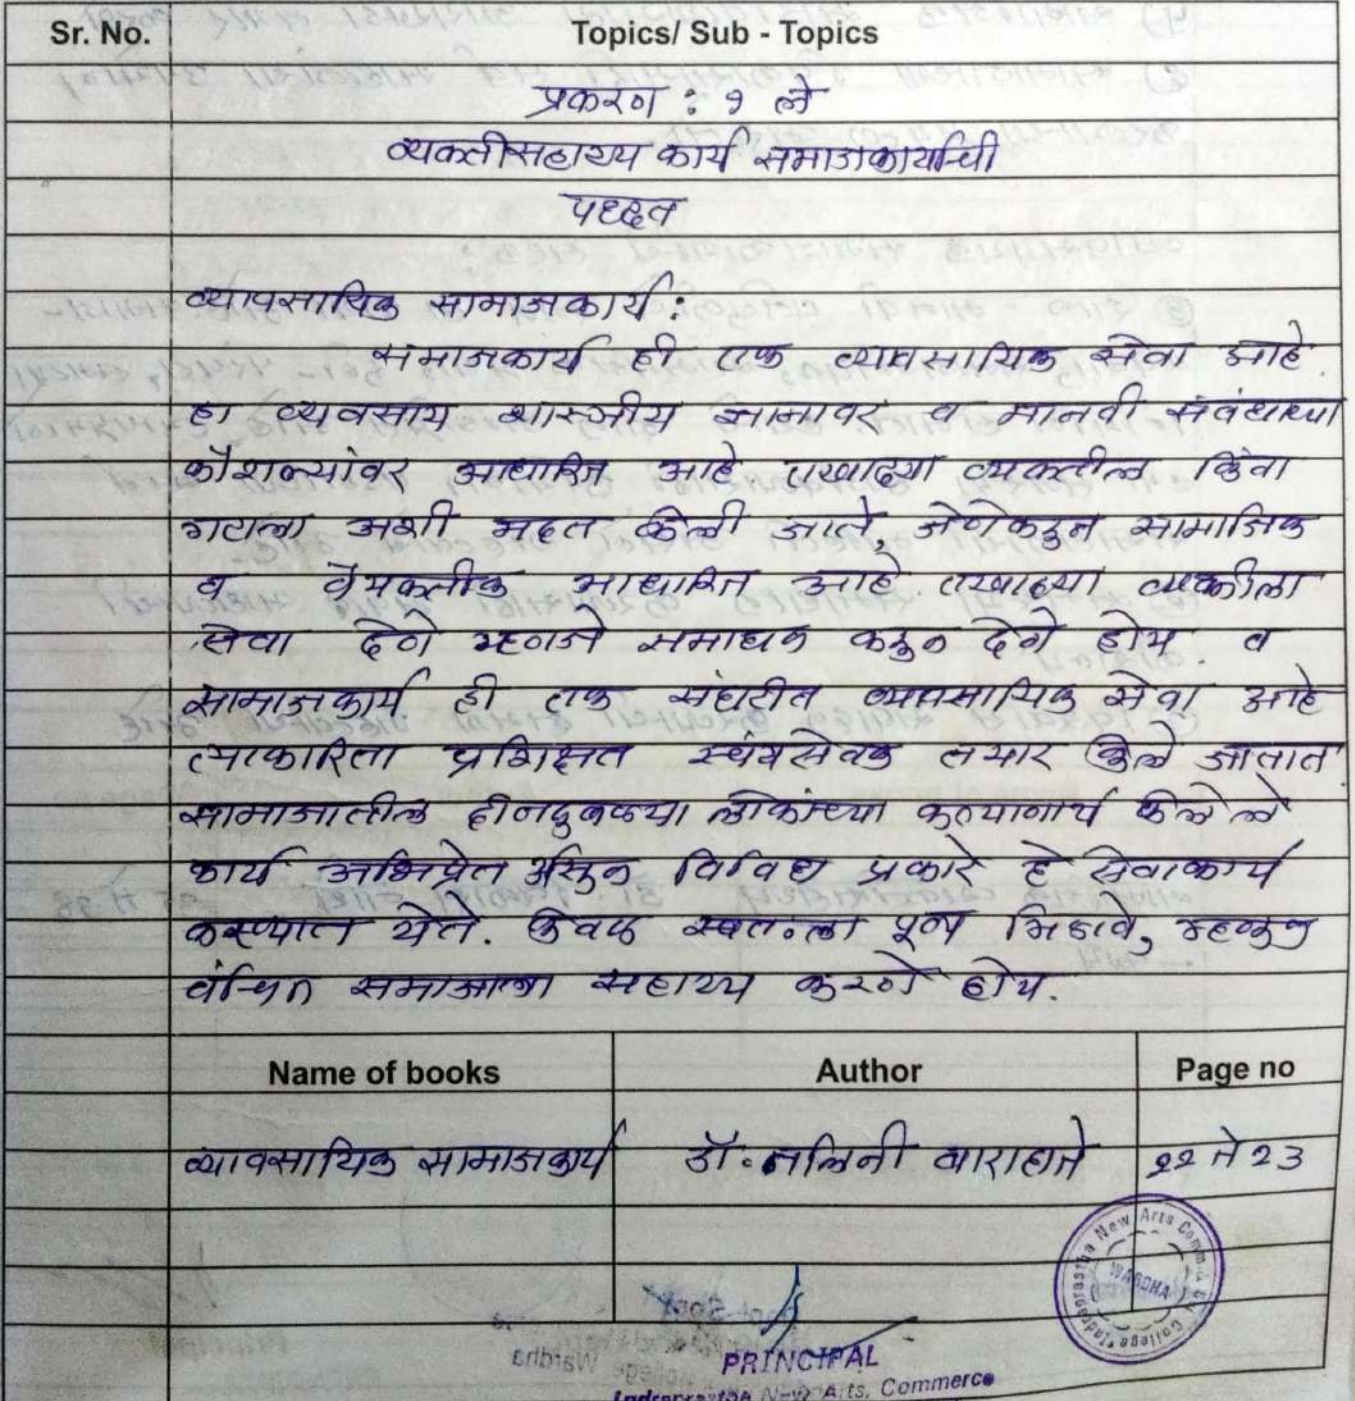 Sr. No. Topics/ Sub - Topics
प्रकरण : १ ले
व्यक्तीसहाय्य कार्य समाजकार्याची
पध्दत
व्यावसायिक सामाजकार्य :
समाजकार्य ही एक व्यावसायिक सेवा आहे.
हा व्यवसाय शास्त्रीय ज्ञानावर व मानवी संबंधाच्या
कौशल्यांवर आधारित आहे. एखाद्या व्यक्तीला किंवा
गटाला अशी मदत केली जाते, जेणेकरुन सामाजिक
व वैयक्तीक आधारित आहे. एखाद्या व्यक्तीला
सेवा देणे म्हणजे समाधान करुन देणे होय व
सामाजकार्य ही एक संघटीत व्यावसायिक सेवा आहे
त्याकारिता प्रशिक्षत स्वंयसेवक तयार केले जातात
सामाजातील दीनदुबळ्या लोकांच्या कल्याणार्थ केलेले
कार्य अभिप्रेत असुन विविध प्रकारे हे सेवाकार्य
करण्यात येते. केवळ स्वतःला पूण्य मिळावे, म्हणुन
वंचित समाजाला सहाय्य करणे होय.
Name of books Author Page no
व्यावसायिक सामाजकार्य डॉ. नलिनी वाराहाते 22 ते 23
New Arts Comm.
WARDHA
College
PRINCIPAL
Indraprastha New Arts, Commerce